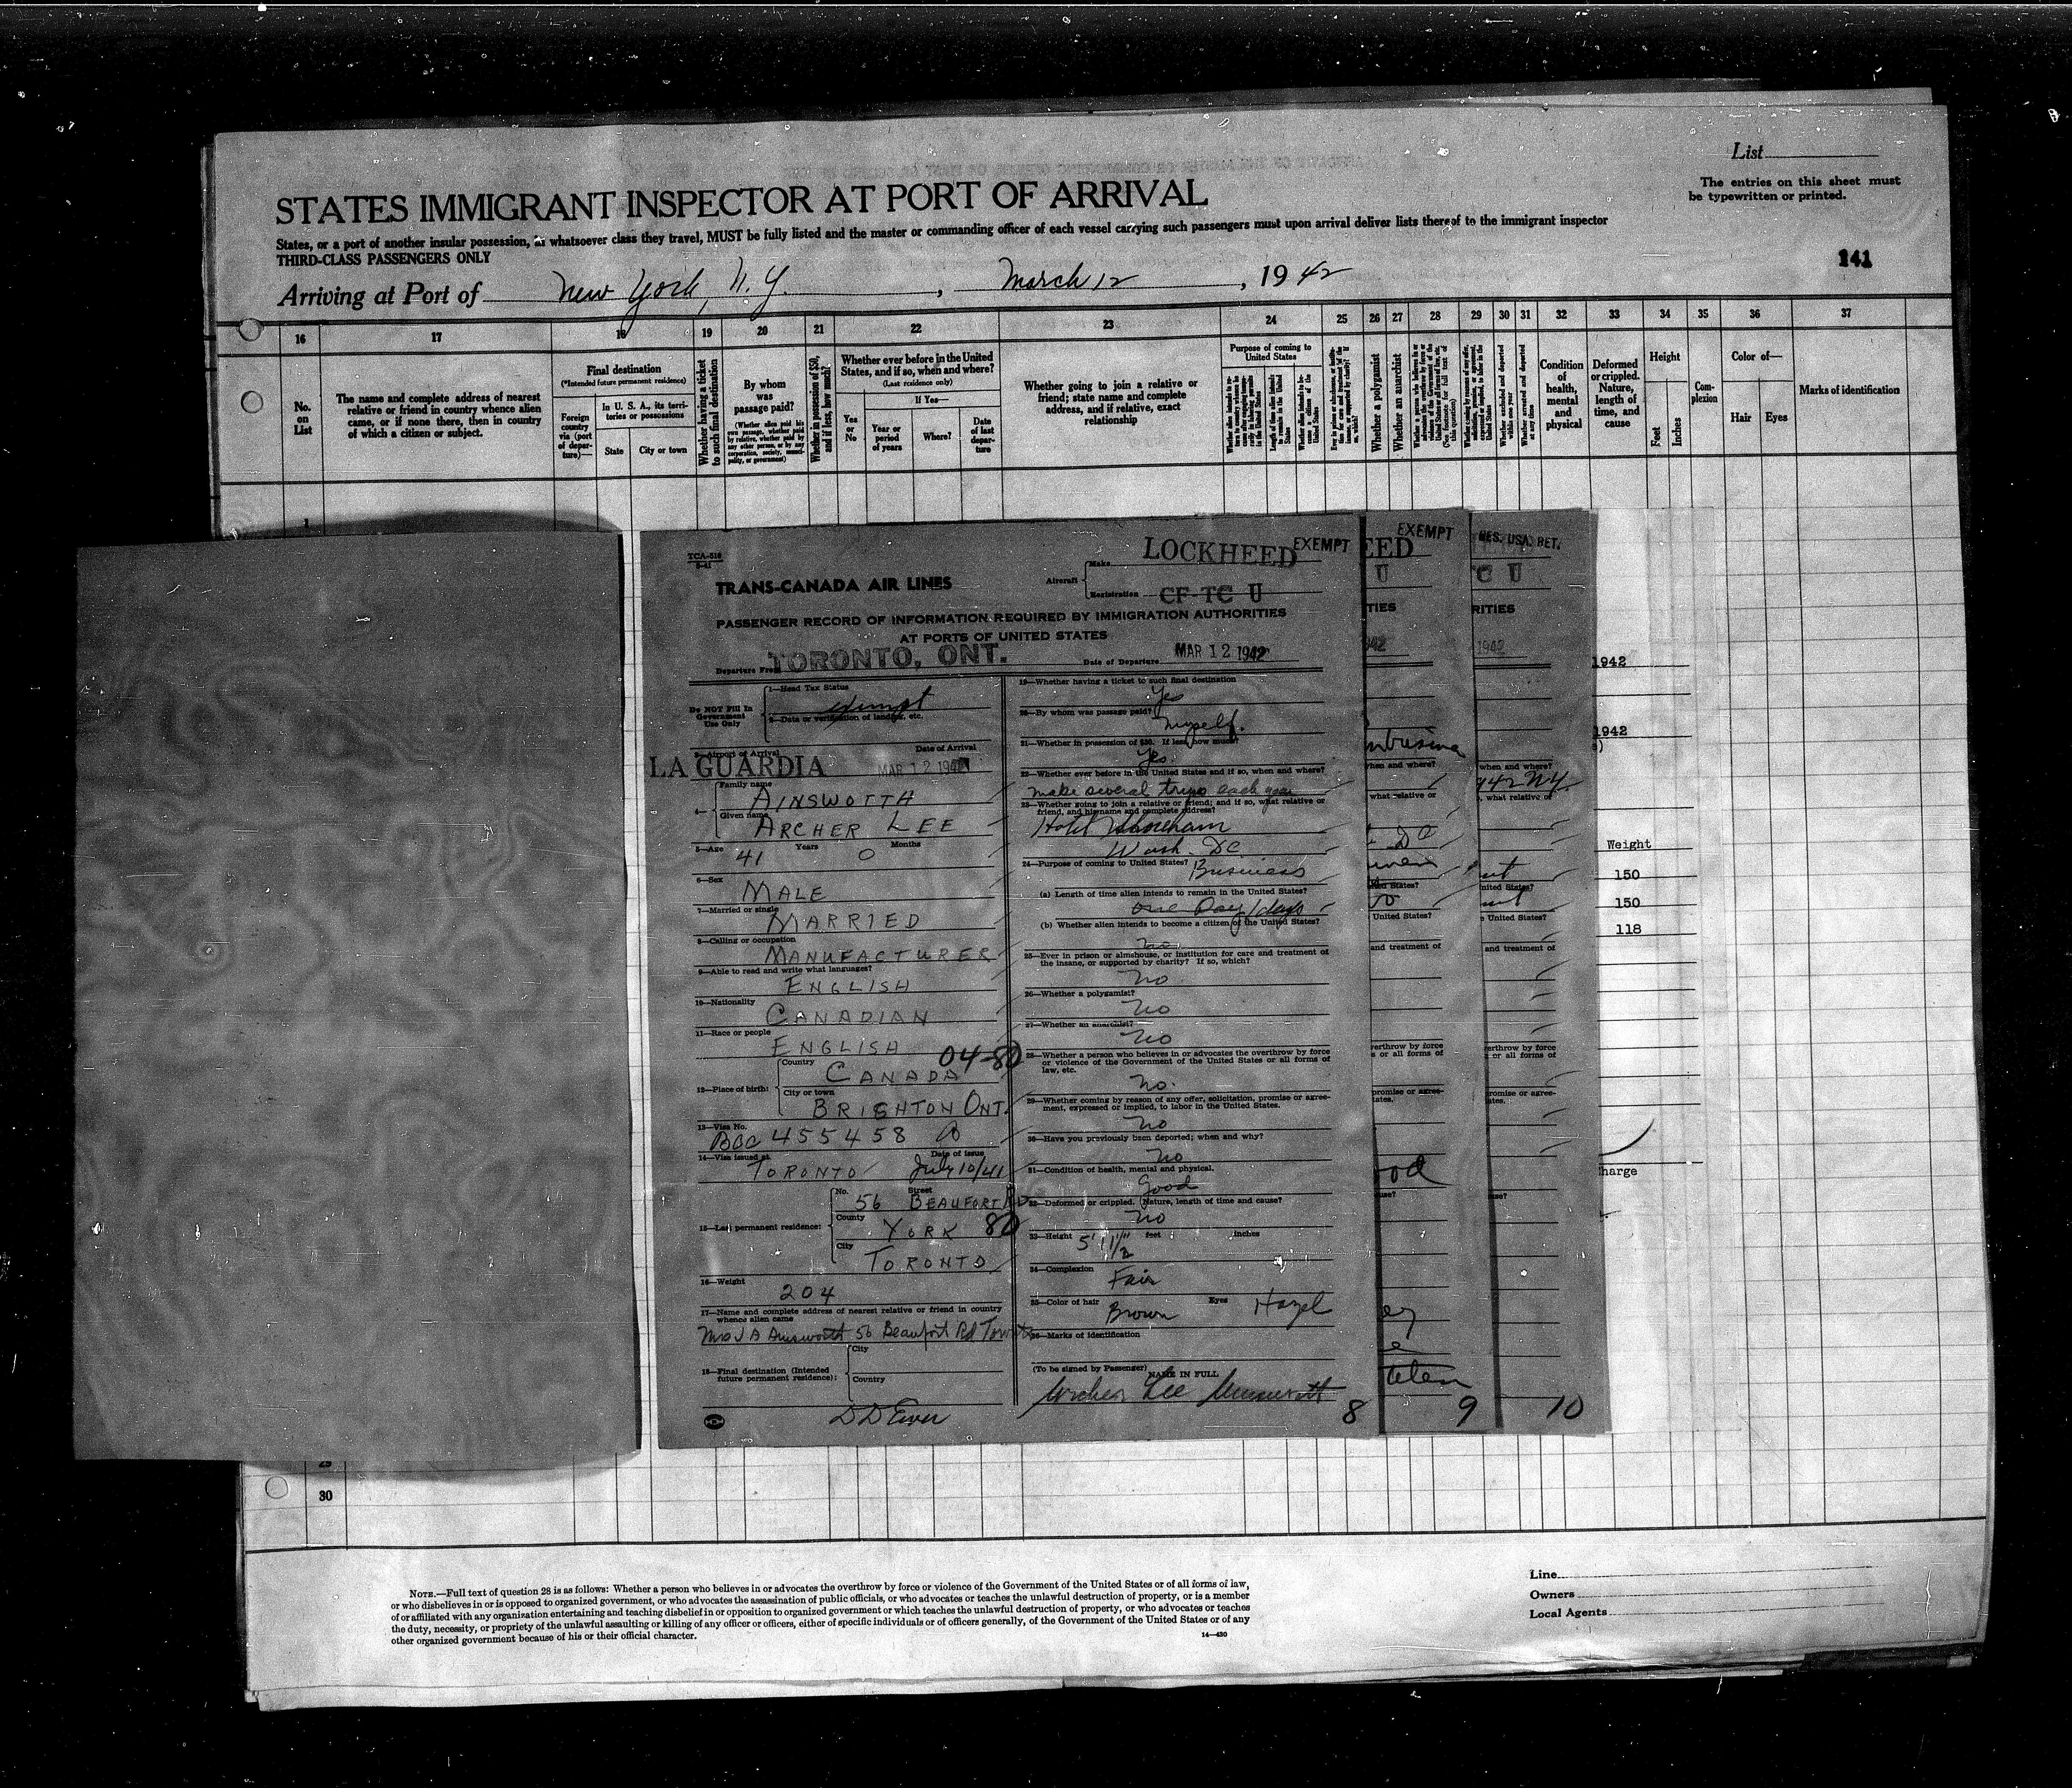 List
The entries on this sheet must
be typewritten or printed.
STATES IMMIGRANT INSPECTOR AT PORT OF ARRIVAL
States, or a port of another insular possession, in whatsoever class they travel, MUST be fully listed and the master or commanding officer of each vessel carrying such passengers must upon arrival deliver lists thereof to the immigrant inspector
THIRD-CLASS PASSENGERS ONLY
141
Arriving at Port of New York, N.Y., March 12, 1942
16 17 18 19 20 21 22 23 24 25 26 27 28 29 30 31 32 33 34 35 36 37
No. on List
The name and complete address of nearest
relative or friend in country whence alien
came, or if none there, then in country
of which a citizen or subject.
Final destination
(*Intended future permanent residence)
Foreign country via (port of departure)—
In U. S. A., its territories or possessions
State
City or town
Whether having a ticket to such final destination
By whom was passage paid?
(Whether alien paid his own passage, whether paid by relative, whether paid by any other person, or by any corporation, society, municipality, or government)
Whether in possession of $50, and if less, how much?
Whether ever before in the United
States, and if so, when and where?
(Last residence only)
Yes or No
If Yes—
Year or period of years
Where?
Date of last departure
Whether going to join a relative or
friend; state name and complete
address, and if relative, exact
relationship
Purpose of coming to United States
Whether a polygamist
Whether an anarchist
Condition of health, mental and physical
Deformed or crippled. Nature, length of time, and cause
Height
Feet
Inches
Complexion
Color of—
Hair
Eyes
Marks of identification
1
TCA-518
TRANS-CANADA AIR LINES
Aircraft
Make LOCKHEED
EXEMPT
Registration CF-TC U
PASSENGER RECORD OF INFORMATION REQUIRED BY IMMIGRATION AUTHORITIES
AT PORTS OF UNITED STATES
Departure From TORONTO, ONT.
Date of Departure MAR 12 1942
Do NOT Fill In
Government
Use Only
1—Head Tax Status
exempt
2—Date or verification of landing, etc.
3—Airport of Arrival
Date of Arrival
LA GUARDIA MAR 12 1942
4—
Family name
AINSWOTTH
Given name
ARCHER LEE
5—Age 41 Years 0 Months
6—Sex
MALE
7—Married or single
MARRIED
8—Calling or occupation
MANUFACTURER
9—Able to read and write what languages?
ENGLISH
10—Nationality
CANADIAN
11—Race or people
ENGLISH
04-80
12—Place of birth:
Country
CANADA
City or town
BRIGHTON ONT.
13—Visa No.
BCC 455458
14—Visa issued at
Date of issue
TORONTO July 10/41
15—Last permanent residence:
No. Street
56 BEAUFORT RD
County
YORK 80
City
TORONTO
16—Weight
204
17—Name and complete address of nearest relative or friend in country
whence alien came
Mrs J A Ainsworth 56 Beaufort Rd Toronto
18—Final destination (Intended
future permanent residence):
City
Country
19—Whether having a ticket to such final destination
Yes
20—By whom was passage paid?
Myself.
21—Whether in possession of $50. If less, how much?
Yes.
22—Whether ever before in the United States and if so, when and where?
make several trips each year
23—Whether going to join a relative or friend; and if so, what relative or
friend, and his name and complete address?
Hotel Shoreham
Wash. DC
24—Purpose of coming to United States?
Business
(a) Length of time alien intends to remain in the United States?
one Day / days
(b) Whether alien intends to become a citizen of the United States?
no
25—Ever in prison or almshouse, or institution for care and treatment of
the insane, or supported by charity? If so, which?
No
26—Whether a polygamist?
No
27—Whether an anarchist?
No
28—Whether a person who believes in or advocates the overthrow by force
or violence of the Government of the United States or all forms of
law, etc.
No.
29—Whether coming by reason of any offer, solicitation, promise or agree-
ment, expressed or implied, to labor in the United States.
No
30—Have you previously been deported; when and why?
No
31—Condition of health, mental and physical.
Good
32—Deformed or crippled. (Nature, length of time and cause?
No
33—Height 5' 11 1/2" feet inches
34—Complexion
Fair
35—Color of hair Brown Eyes Hazel
36—Marks of identification
(To be signed by Passenger)
NAME IN FULL
Archer Lee Ainsworth
8
EED
EXEMPT
U
TIES
9
RES. USA. RET.
C U
RITIES
1942
10
1942
1942
Weight
150
150
118
harge
29
30
NOTE.—Full text of question 28 is as follows: Whether a person who believes in or advocates the overthrow by force or violence of the Government of the United States or of all forms of law,
or who disbelieves in or is opposed to organized government, or who advocates the assassination of public officials, or who advocates or teaches the unlawful destruction of property, or is a member
of or affiliated with any organization entertaining and teaching disbelief in or opposition to organized government or which teaches the unlawful destruction of property, or who advocates or teaches
the duty, necessity, or propriety of the unlawful assaulting or killing of any officer or officers, either of specific individuals or of officers generally, of the Government of the United States or of any
other organized government because of his or their official character.
14—430
Line
Owners
Local Agents